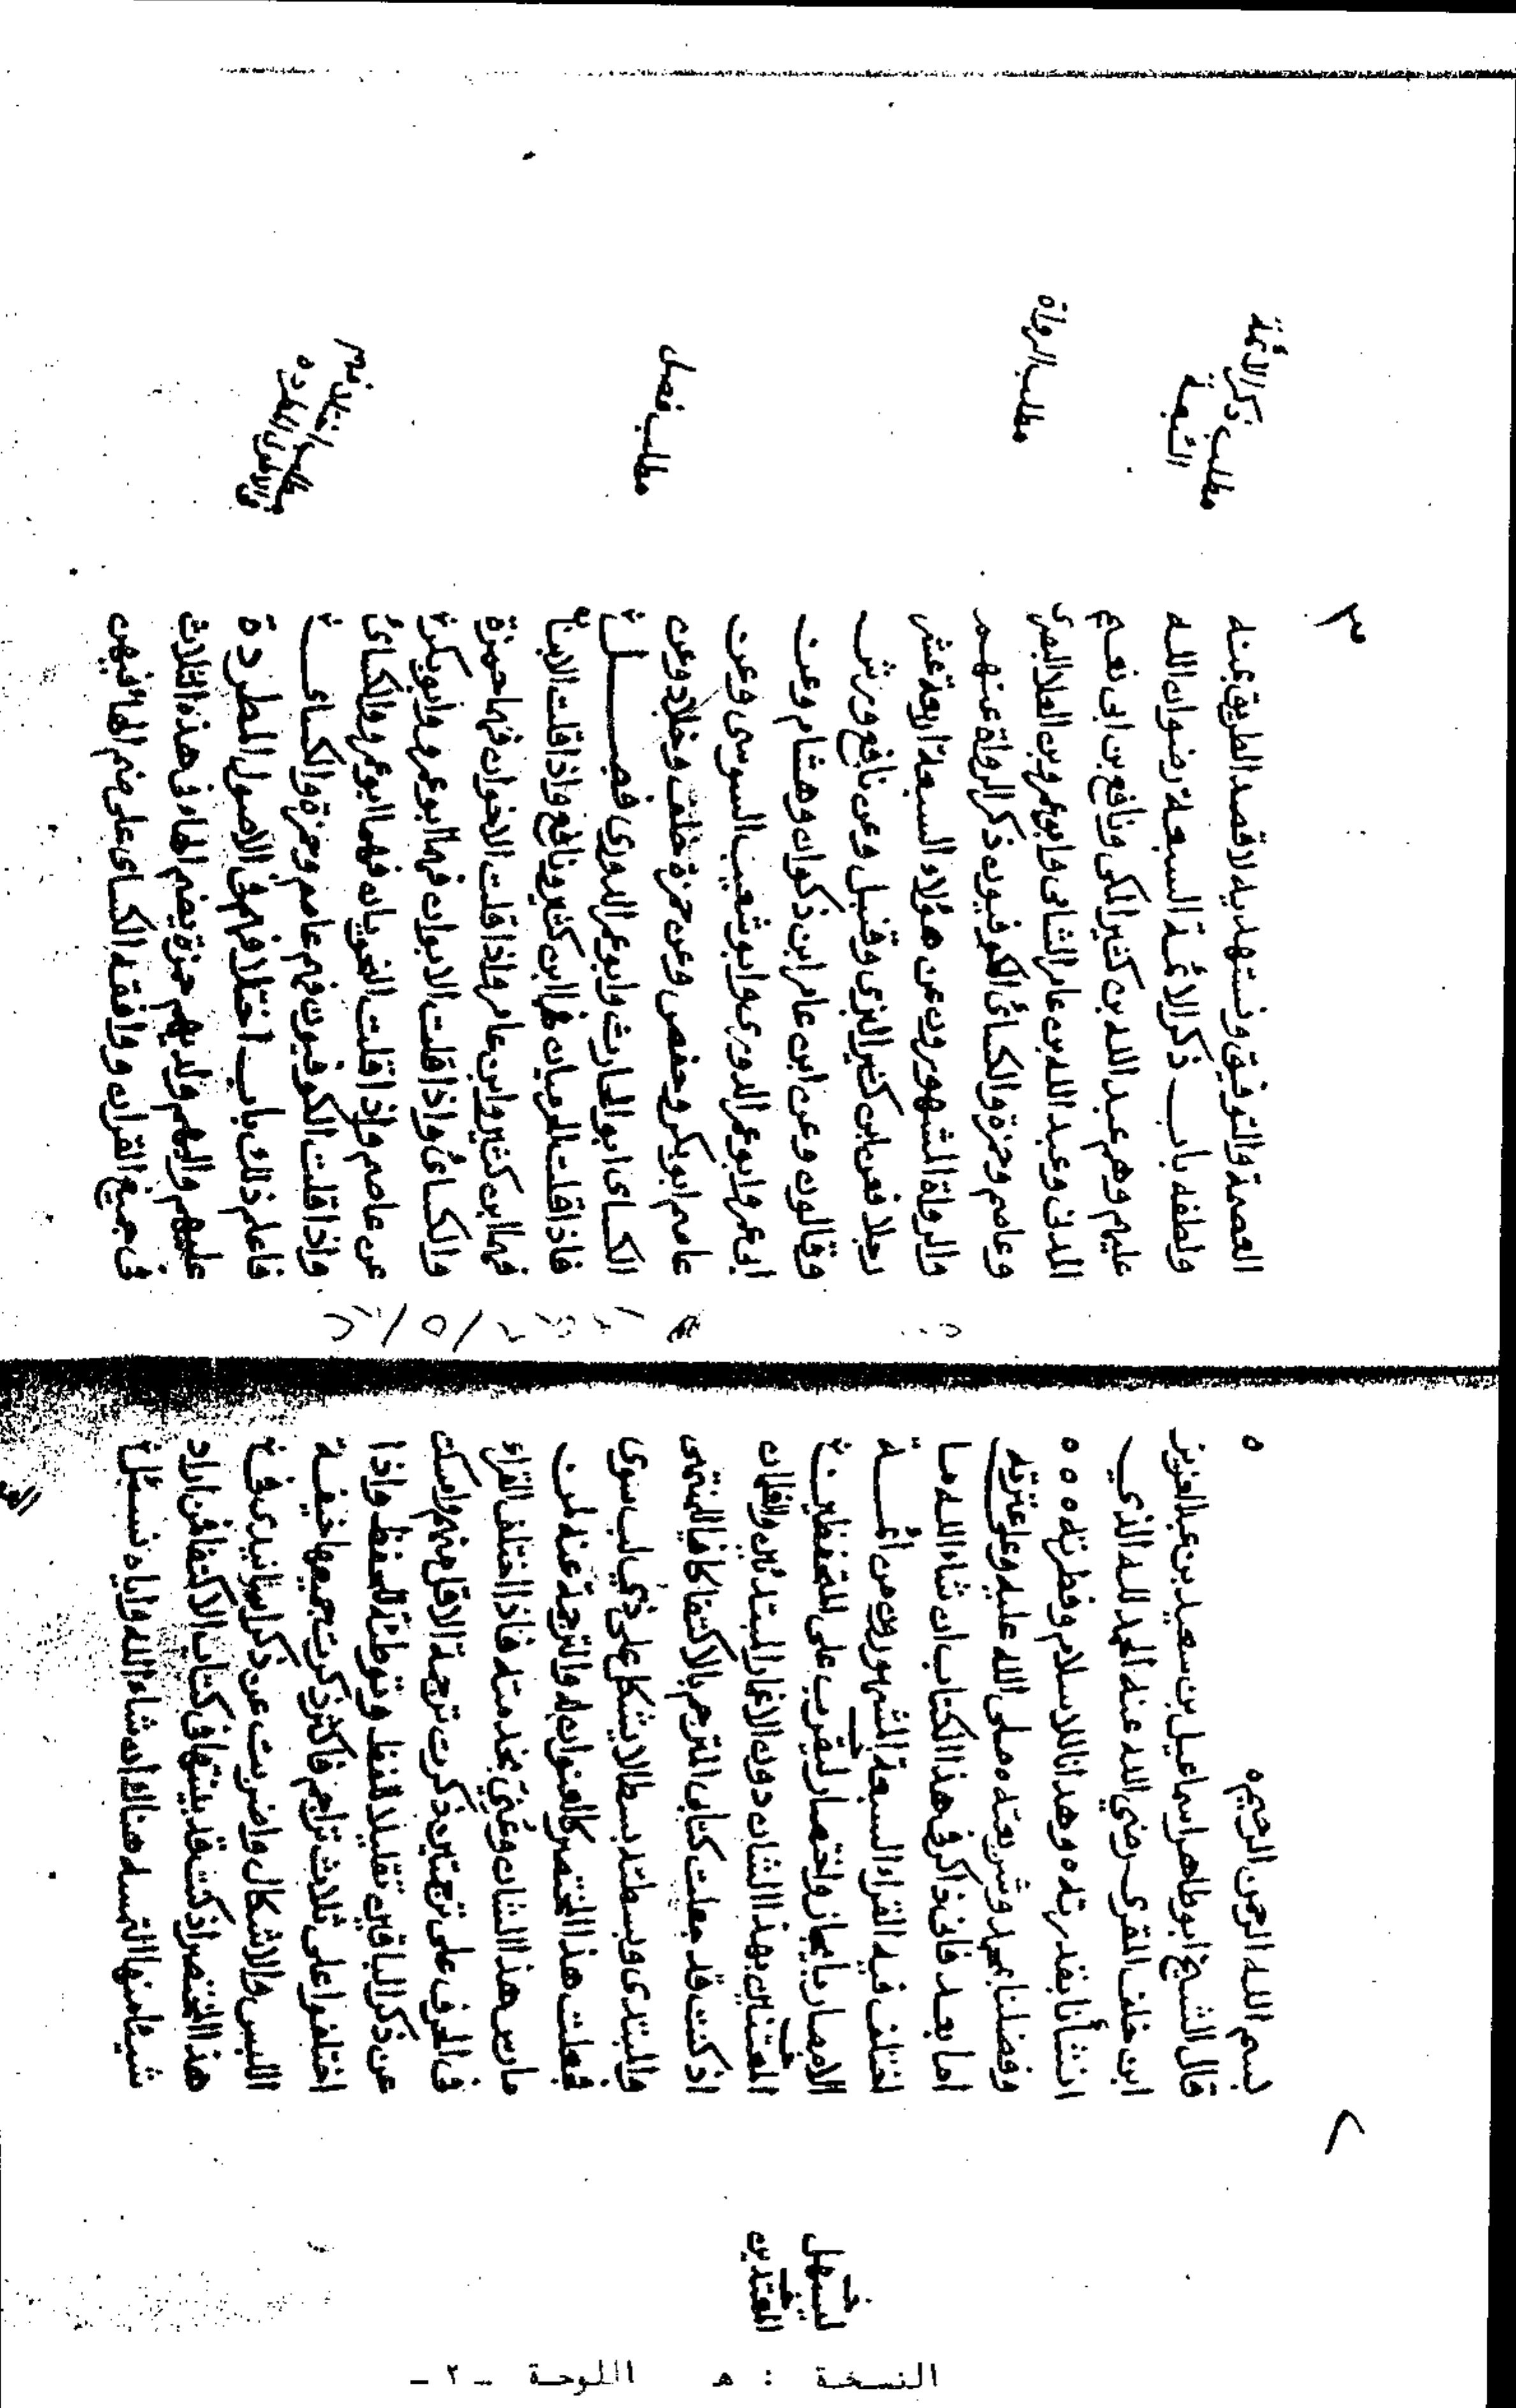 ٢
بسم الله الرحمن الرحيم ه
قال الشيخ ابو طاهر اسماعيل بن سعيد بن عبد العزيز
ابن خلف المقرى رضي الله عنه الحمد لله الذي
انشأنا بقدرته وهدانا للاسلام وفطرته ه ه ه
وفضلنا بمحمد وشريعته صلى الله عليه وعلى عترته
اما بعد فانى ذاكر فى هذا الكتاب ان شاء الله ما
اختلف فيه القراء السبعة المشهورون من ائمـــة
الامصار بايجاز واختصار ليقرب على المتحفظين
المعتنين بهذا الشان دون الاغمار المبتدئين
اذ كنت قد جعلت كتابى المترجم بالاكتفا كافيا للمنتهى
والمبتدى وبسطته بسطا لا يشكل على ذي لب سوى
فجعلت هذا المختصر كالعنوان له والترجمة عنه لمن
مارس هذا الشان وعني بخدمته فاذا اختلف القراء
فى الحرف على ترجمتين ذكرت ترجمة الاقل منهم وامسكت
عن ذكر الباقين تقليلا للفظ وتوطئة للحفظ واذا
اختلفوا على ثلاث تراجم فاكثر ذكرت جميعها خيفـة
اللبس والاشكال واضربت عن ذكر اسانيدى فى
هذا المختصر اذ كنت قد بينتها فى كتاب الاكتفا فمن اراد
شيئا منها التمسه هناك ان شاء الله واياه نسئل
ليسهل
المعتدين
٣
العصمة والتوفيق ونستهديه لاقصد الطريق بمنه
ولطفه باب ذكر الائمة السبعة رضوان الله
عليهم وهم عبد الله بن كثير المكى ونافع بن ابى نعيم
المدنى وعبد الله بن عامر الشامى وابو عمرو بن العلا البصرى
وعاصم وحمزة والكسائى الكوفيون ذكر الرواة عنهم
والرواة المشهورون عن هؤلاء السبعة اربعة عشر
رجلا فعن ابن كثير البزى وقنبل وعن نافع ورش
وقالون وعن ابن عامر ابن ذكوان وهشام وعن
ابى عمرو ابو عمر الدورى وابو شعيب السوسى وعن
عاصم ابو بكر وحفص وعن حمزة خلف وخلاد وعن
الكسائى ابو الحارث وابو عمر الدورى فصـــل
فاذا قلت الحرميان فهما ابن كثير ونافع واذا قلت الابنان
فهما ابن كثير وابن عامر واذا قلت الاخوان فهما حمزة
والكسائى واذا قلت الابوان فهما ابو عمرو وابو بكر
عن عاصم واذا قلت النحويان فهما ابو عمرو والكسائى
واذا قلت الكوفيون فهم عاصم وحمزة والكسائى
فاعلم ذلك باب اختلافهم فى الاصول المطردة
عليهم واليهم ولديهم حمزة بضم الهاء فى هذه الثلاث
فى جميع القران ووافقه الكسائى على ضم الهاء فيهن
مطلب ذكر الائمة
السبعة
مطلب الرواة
مطلب فصل
مطلب اختلافهم
فى الاصول المطرده
النسخة : ه اللوحة - ٢ -